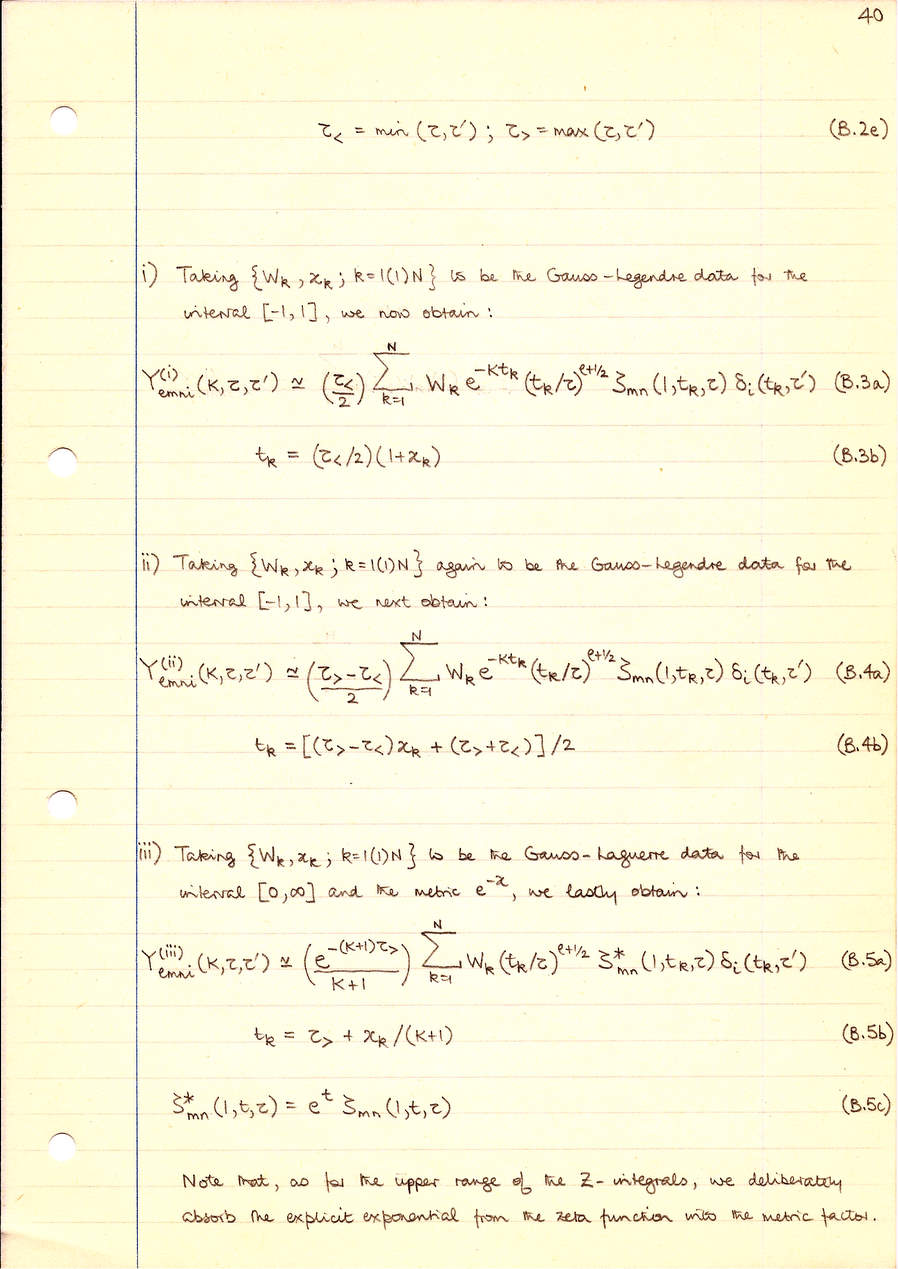 40
τ< = min (τ,τ′) ; τ> = max (τ,τ′) (B.2e)
i) Taking {Wk , xk ; k=1(1)N} to be the Gauss-Legendre data for the
interval [-1,1], we now obtain :
Y^(i)_ℓmni (K,τ,τ′) ≃ (τ</2) Σ_{k=1}^{N} Wk e^{-Ktk} (tk/τ)^{ℓ+1/2} ζmn (1,tk,τ) δi (tk,τ′) (B.3a)
tk = (τ</2)(1+xk) (B.3b)
ii) Taking {Wk, xk ; k=1(1)N} again to be the Gauss-Legendre data for the
interval [-1,1], we next obtain :
Y^(ii)_ℓmni (K,τ,τ′) ≃ ((τ>-τ<)/2) Σ_{k=1}^{N} Wk e^{-Ktk} (tk/τ)^{ℓ+1/2} ζmn (1,tk,τ) δi (tk,τ′) (B.4a)
tk = [(τ>-τ<)xk + (τ>+τ<)]/2 (B.4b)
iii) Taking {Wk, xk ; k=1(1)N} to be the Gauss-Laguerre data for the
interval [0,∞] and the metric e^{-x}, we lastly obtain :
Y^(iii)_ℓmni (K,τ,τ′) ≃ (e^{-(K+1)τ>}/(K+1)) Σ_{k=1}^{N} Wk (tk/τ)^{ℓ+1/2} ζ*mn (1,tk,τ) δi (tk,τ′) (B.5a)
tk = τ> + xk/(K+1) (B.5b)
ζ*mn (1,t,τ) = e^t ζmn (1,t,τ) (B.5c)
Note that, as for the upper range of the Z-integrals, we deliberately
absorb the explicit exponential from the zeta function into the metric factor.